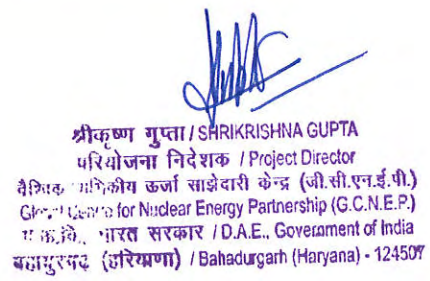 श्रीकृष्ण गुप्ता / SHRIKRISHNA GUPTA
परियोजना निदेशक / Project Director
वैश्विक नाभिकीय ऊर्जा साझेदारी केन्द्र (जी.सी.एन.ई.पी.)
Global Centre for Nuclear Energy Partnership (G.C.N.E.P.)
भारत सरकार / D.A.E., Government of India
बहादुरगढ़ (हरियाणा) / Bahadurgarh (Haryana) - 124507